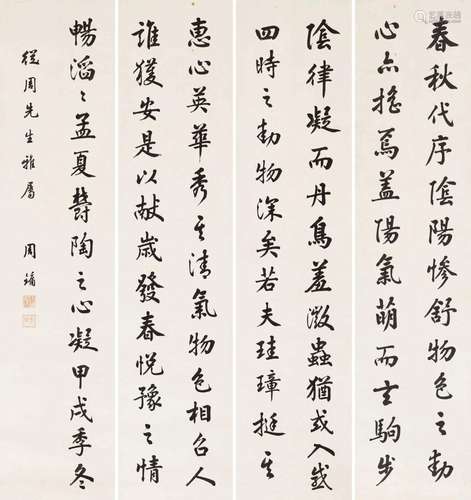 春秋代序陰陽慘舒物色之動
心亦搖焉蓋陽氣萌而玄駒步
陰律凝而丹鳥羞微蟲猶或入感
四時之動物深矣若夫珪璋挺其
惠心英華秀其清氣物色相召人
誰獲安是以献歲發春悅豫之情
暢滔〻孟夏鬱陶之心凝甲戌季冬
從周先生雅屬
周